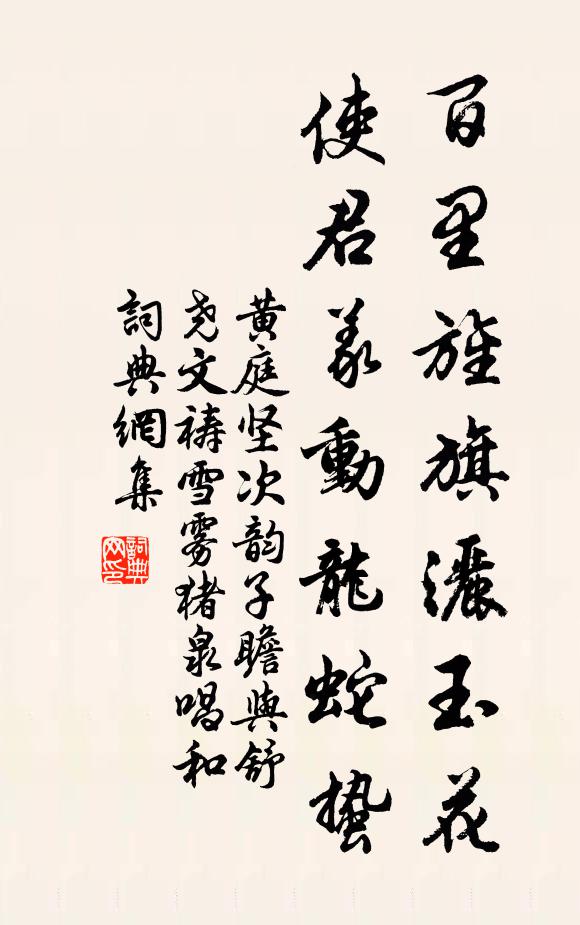 百里旌旗灑玉花
使君義動龍蛇蟄
黄庭坚次韵子瞻與舒
尧文禱雪雾猪泉唱和
詞典網集
詞典
网印